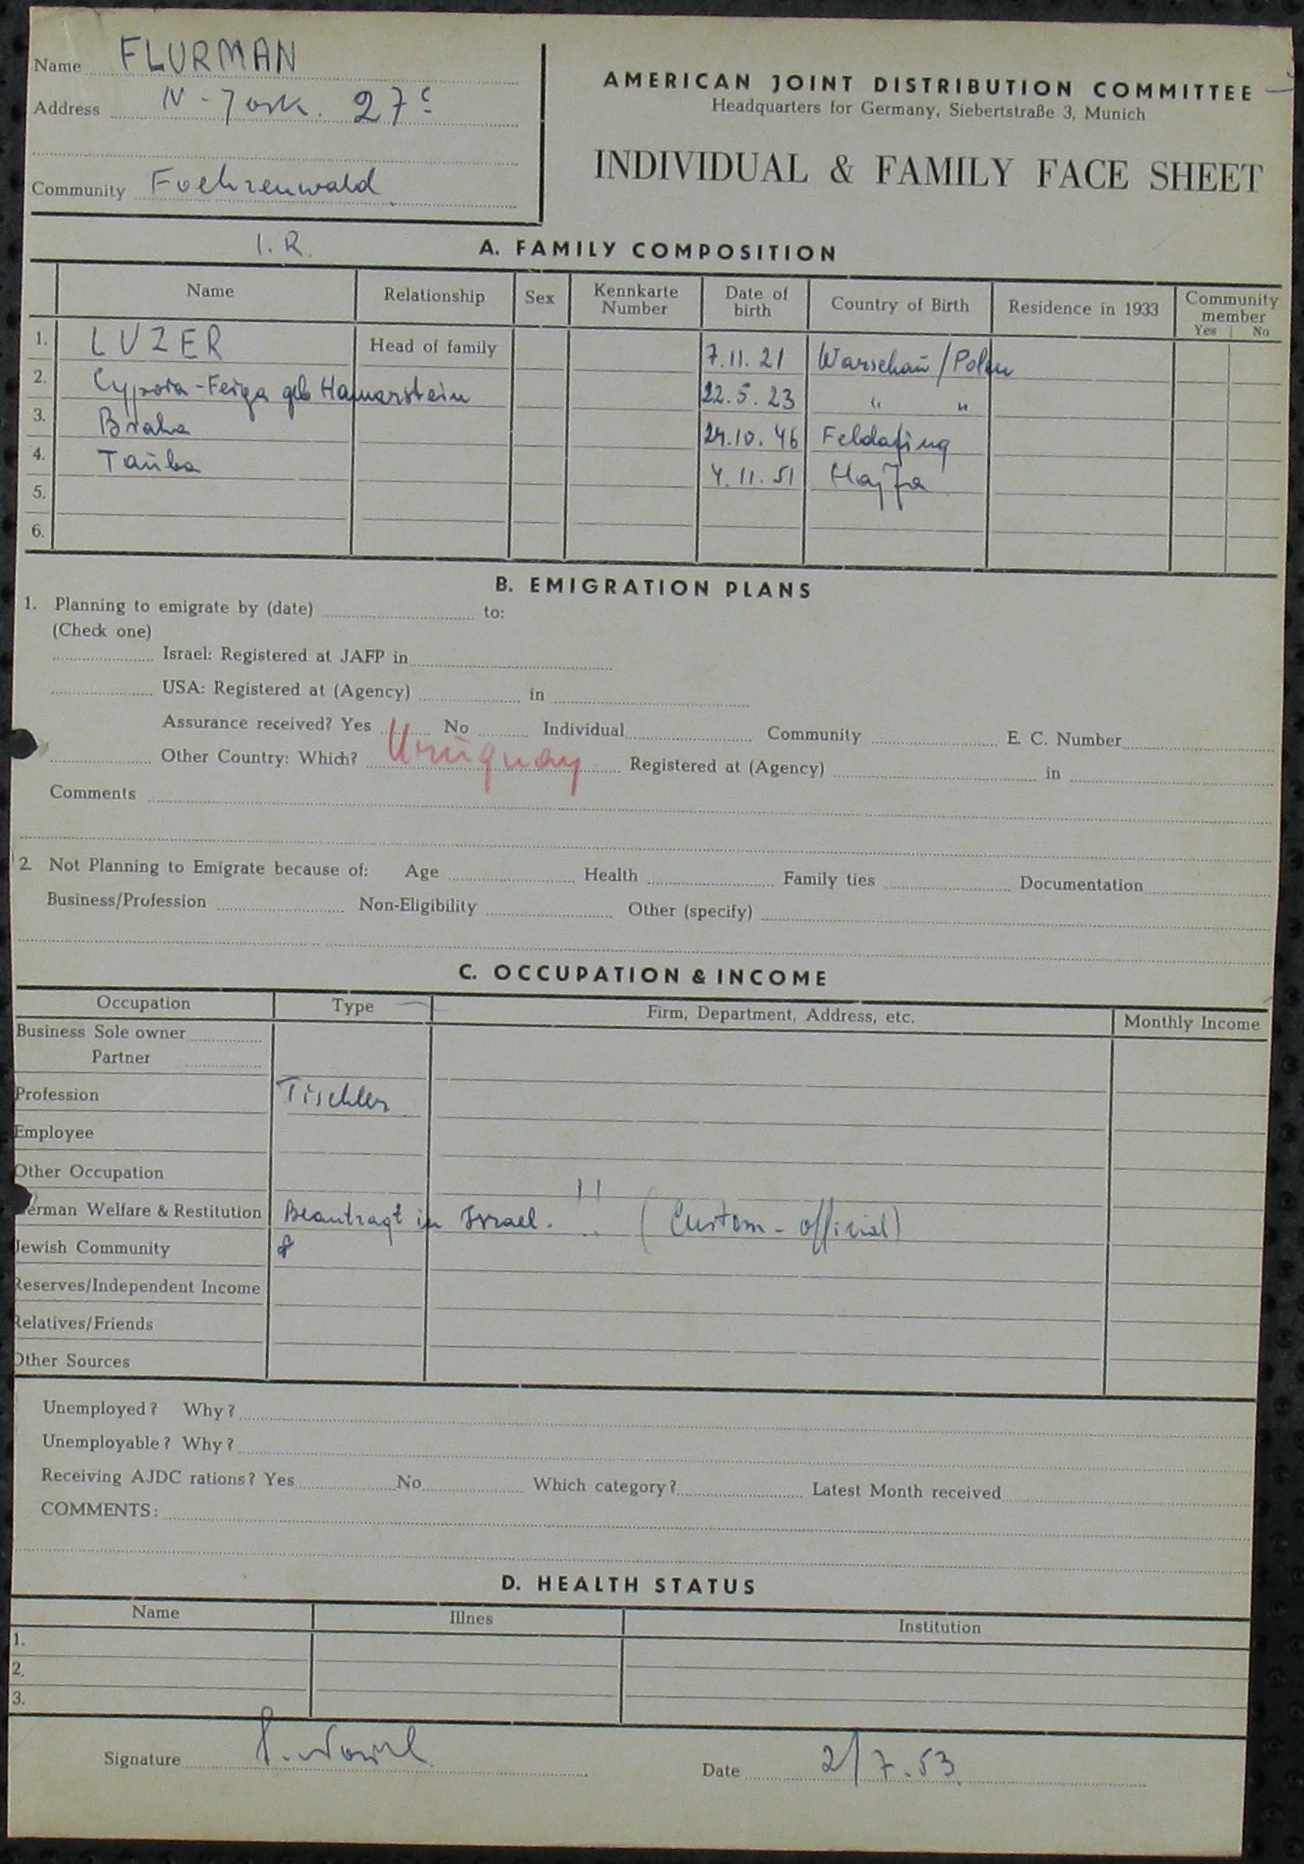 Name FLURMAN
Address N-York. 27c
Community Foehrenwald
AMERICAN JOINT DISTRIBUTION COMMITTEE
Headquarters for Germany, Siebertstraße 3, Munich
INDIVIDUAL & FAMILY FACE SHEET
I. R.
A. FAMILY COMPOSITION
Name Relationship Sex Kennkarte Number Date of birth Country of Birth Residence in 1933 Community member Yes No
1. LUZER Head of family 7.11.21 Warschaŭ/Polen
2. Cypora-Feiga geb Hamarstein 22.5.23 " "
3. Braha 24.10.46 Feldafing
4. Taŭba 4.11.51 Hajfa
5.
6.
B. EMIGRATION PLANS
1. Planning to emigrate by (date) to:
(Check one)
Israel: Registered at JAFP in
USA: Registered at (Agency) in
Assurance received? Yes No Individual Community E. C. Number
Other Country: Which? Uruguay Registered at (Agency) in
Comments
2. Not Planning to Emigrate because of: Age Health Family ties Documentation
Business/Profession Non-Eligibility Other (specify)
C. OCCUPATION & INCOME
Occupation Type Firm, Department, Address, etc. Monthly Income
Business Sole owner
Partner
Profession Tischler
Employee
Other Occupation
German Welfare & Restitution Beantragt in Israel. !! (Custom-official)
Jewish Community
Reserves/Independent Income
Relatives/Friends
Other Sources
Unemployed? Why?
Unemployable? Why?
Receiving AJDC rations? Yes No Which category? Latest Month received
COMMENTS:
D. HEALTH STATUS
Name Illnes Institution
1.
2.
3.
Signature
Date 2/7.53